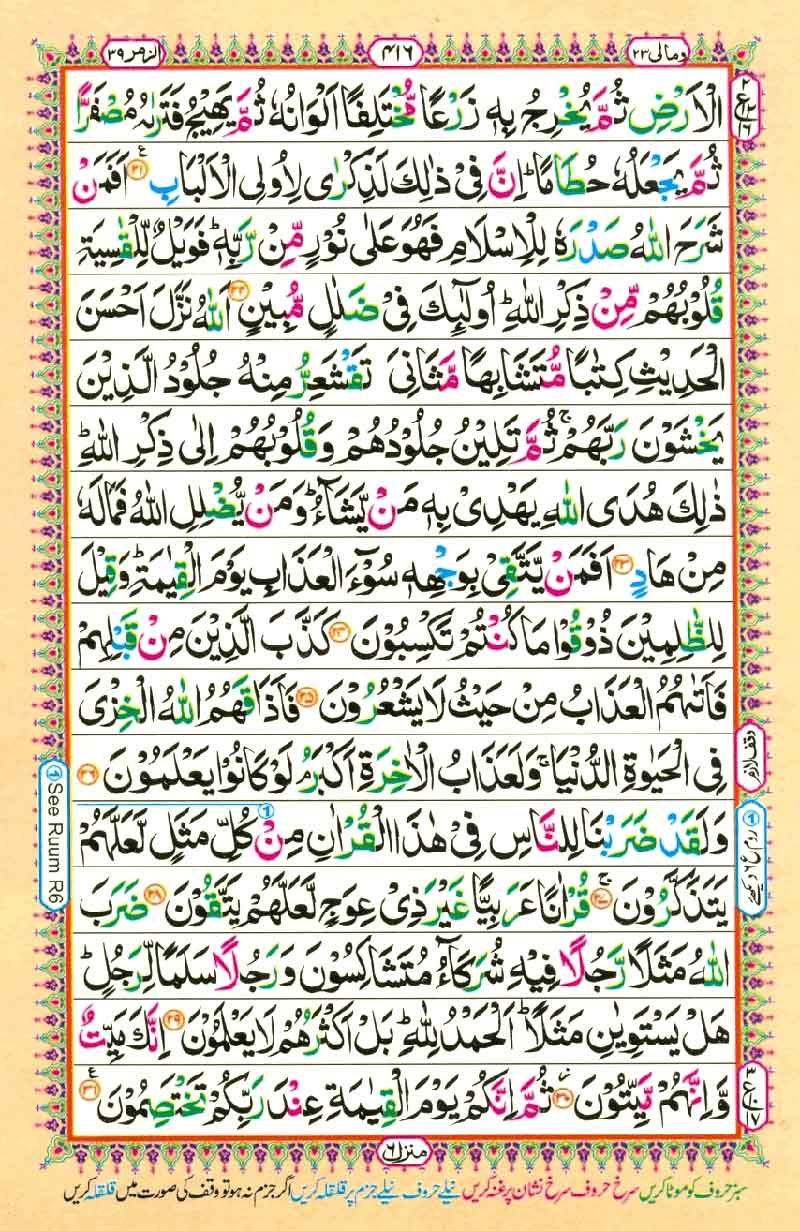 الزمر ٣٩
٤١٦
ومالی ٢٣
الْاَرْضِ ثُمَّ يُخْرِجُ بِهٖ زَرْعًا مُّخْتَلِفًا اَلْوَانُهٗ ثُمَّ يَهِيْجُ فَتَرٰىهُ مُصْفَرًّا
ثُمَّ يَجْعَلُهٗ حُطَامًا ؕ اِنَّ فِىْ ذٰلِكَ لَذِكْرٰى لِاُولِى الْاَلْبَابِ ﴿٢١﴾ اَفَمَنْ
شَرَحَ اللّٰهُ صَدْرَهٗ لِلْاِسْلَامِ فَهُوَ عَلٰى نُوْرٍ مِّنْ رَّبِّهٖ ؕ فَوَيْلٌ لِّلْقٰسِيَةِ
قُلُوْبُهُمْ مِّنْ ذِكْرِ اللّٰهِ ؕ اُولٰٓئِكَ فِىْ ضَلٰلٍ مُّبِيْنٍ ﴿٢٢﴾ اَللّٰهُ نَزَّلَ اَحْسَنَ
الْحَدِيْثِ كِتٰبًا مُّتَشَابِهًا مَّثَانِىَ تَقْشَعِرُّ مِنْهُ جُلُوْدُ الَّذِيْنَ
يَخْشَوْنَ رَبَّهُمْ ۚ ثُمَّ تَلِيْنُ جُلُوْدُهُمْ وَقُلُوْبُهُمْ اِلٰى ذِكْرِ اللّٰهِ ؕ
ذٰلِكَ هُدَى اللّٰهِ يَهْدِىْ بِهٖ مَنْ يَّشَآءُ ؕ وَمَنْ يُّضْلِلِ اللّٰهُ فَمَا لَهٗ
مِنْ هَادٍ ﴿٢٣﴾ اَفَمَنْ يَّتَّقِىْ بِوَجْهِهٖ سُوْٓءَ الْعَذَابِ يَوْمَ الْقِيٰمَةِ ؕ وَقِيْلَ
لِلظّٰلِمِيْنَ ذُوْقُوْا مَا كُنْتُمْ تَكْسِبُوْنَ ﴿٢٤﴾ كَذَّبَ الَّذِيْنَ مِنْ قَبْلِهِمْ
فَاَتٰٮهُمُ الْعَذَابُ مِنْ حَيْثُ لَا يَشْعُرُوْنَ ﴿٢٥﴾ فَاَذَاقَهُمُ اللّٰهُ الْخِزْىَ
فِى الْحَيٰوةِ الدُّنْيَا ۚ وَلَعَذَابُ الْاٰخِرَةِ اَكْبَرُ ۘ لَوْ كَانُوْا يَعْلَمُوْنَ ﴿٢٦﴾
وَلَقَدْ ضَرَبْنَا لِلنَّاسِ فِىْ هٰذَا الْقُرْاٰنِ مِنْ كُلِّ مَثَلٍ لَّعَلَّهُمْ
يَتَذَكَّرُوْنَ ﴿٢٧﴾ ۚ قُرْاٰنًا عَرَبِيًّا غَيْرَ ذِىْ عِوَجٍ لَّعَلَّهُمْ يَتَّقُوْنَ ﴿٢٨﴾ ضَرَبَ
اللّٰهُ مَثَلًا رَّجُلًا فِيْهِ شُرَكَآءُ مُتَشَاكِسُوْنَ وَرَجُلًا سَلَمًا لِّرَجُلٍ ؕ
هَلْ يَسْتَوِيٰنِ مَثَلًا ؕ اَلْحَمْدُ لِلّٰهِ ؕ بَلْ اَكْثَرُهُمْ لَا يَعْلَمُوْنَ ﴿٢٩﴾ اِنَّكَ مَيِّتٌ
وَّاِنَّهُمْ مَّيِّتُوْنَ ﴿٣٠﴾ ثُمَّ اِنَّكُمْ يَوْمَ الْقِيٰمَةِ عِنْدَ رَبِّكُمْ تَخْتَصِمُوْنَ ﴿٣١﴾
وقف لازم
① See Ruum R6
منزل ٦
سبز حروف کو موٹا کریں سرخ حروف سرخ نشان پر غنہ کریں نیلے حروف نیلے جزم پر قلقلہ کریں اگر جزم نہ ہو تو وقف کی صورت میں قلقلہ کریں